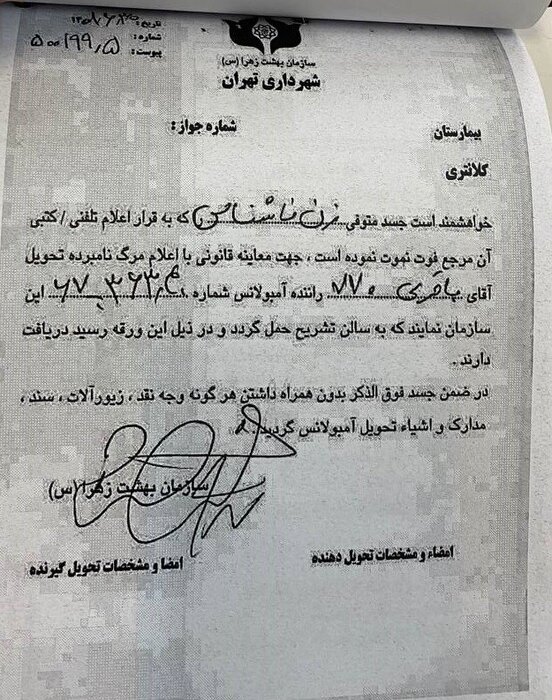 تاریخ:
شماره: ۵۰۰۱۹۹٫۵
پیوست:
سازمان بهشت زهرا (س)
شهرداری تهران
بیمارستان
شماره جواز:
کلانتری
خواهشمند است جسد متوفی زن ناشناس که به قرار اعلام تلفنی / کتبی
آن مرجع فوت نموت نموده است ، جهت معاینه قانونی با اعلام مرگ نامبرده تحویل
آقای باقری ۷۷۰ راننده آمبولانس شماره این
سازمان نمایند که به سالن تشریح حمل گردد و در ذیل این ورقه رسید دریافت
دارند .
در ضمن جسد فوق الذکر بدون همراه داشتن هر گونه وجه نقد ، زیورآلات ، سند ،
مدارک و اشیاء تحویل آمبولانس گردید.
سازمان بهشت زهرا (س)
امضاء و مشخصات تحویل دهنده
امضا و مشخصات تحویل گیرنده